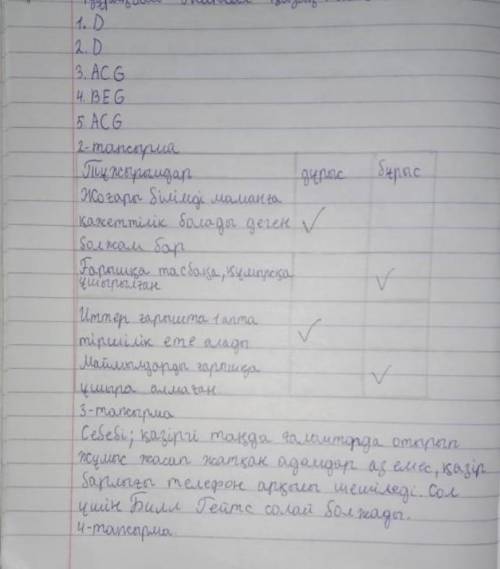 1. D
2. D
3. ACG
4. BEG
5. ACG
2-тапсырма
Тұжырымдар дұрыс бұрыс
Жоғары білімді маманға
қажеттілік болады деген ✓
болжам бар
Ғарышқа тасбақа, құмырсқа
ұшырылған ✓
Иттер ғарышта 1 апта
тіршілік ете алады ✓
Маймылдарды ғарышқа
ұшыра алмаған ✓
3-тапсырма
Себебі; қазіргі таңда ғаламторда отырып
жұмыс жасап жатқан адамдар аз емес, қазір
барлығы телефон арқылы шешіледі. Сол
үшін Билл Гейтс солай болжады.
4-тапсырма.